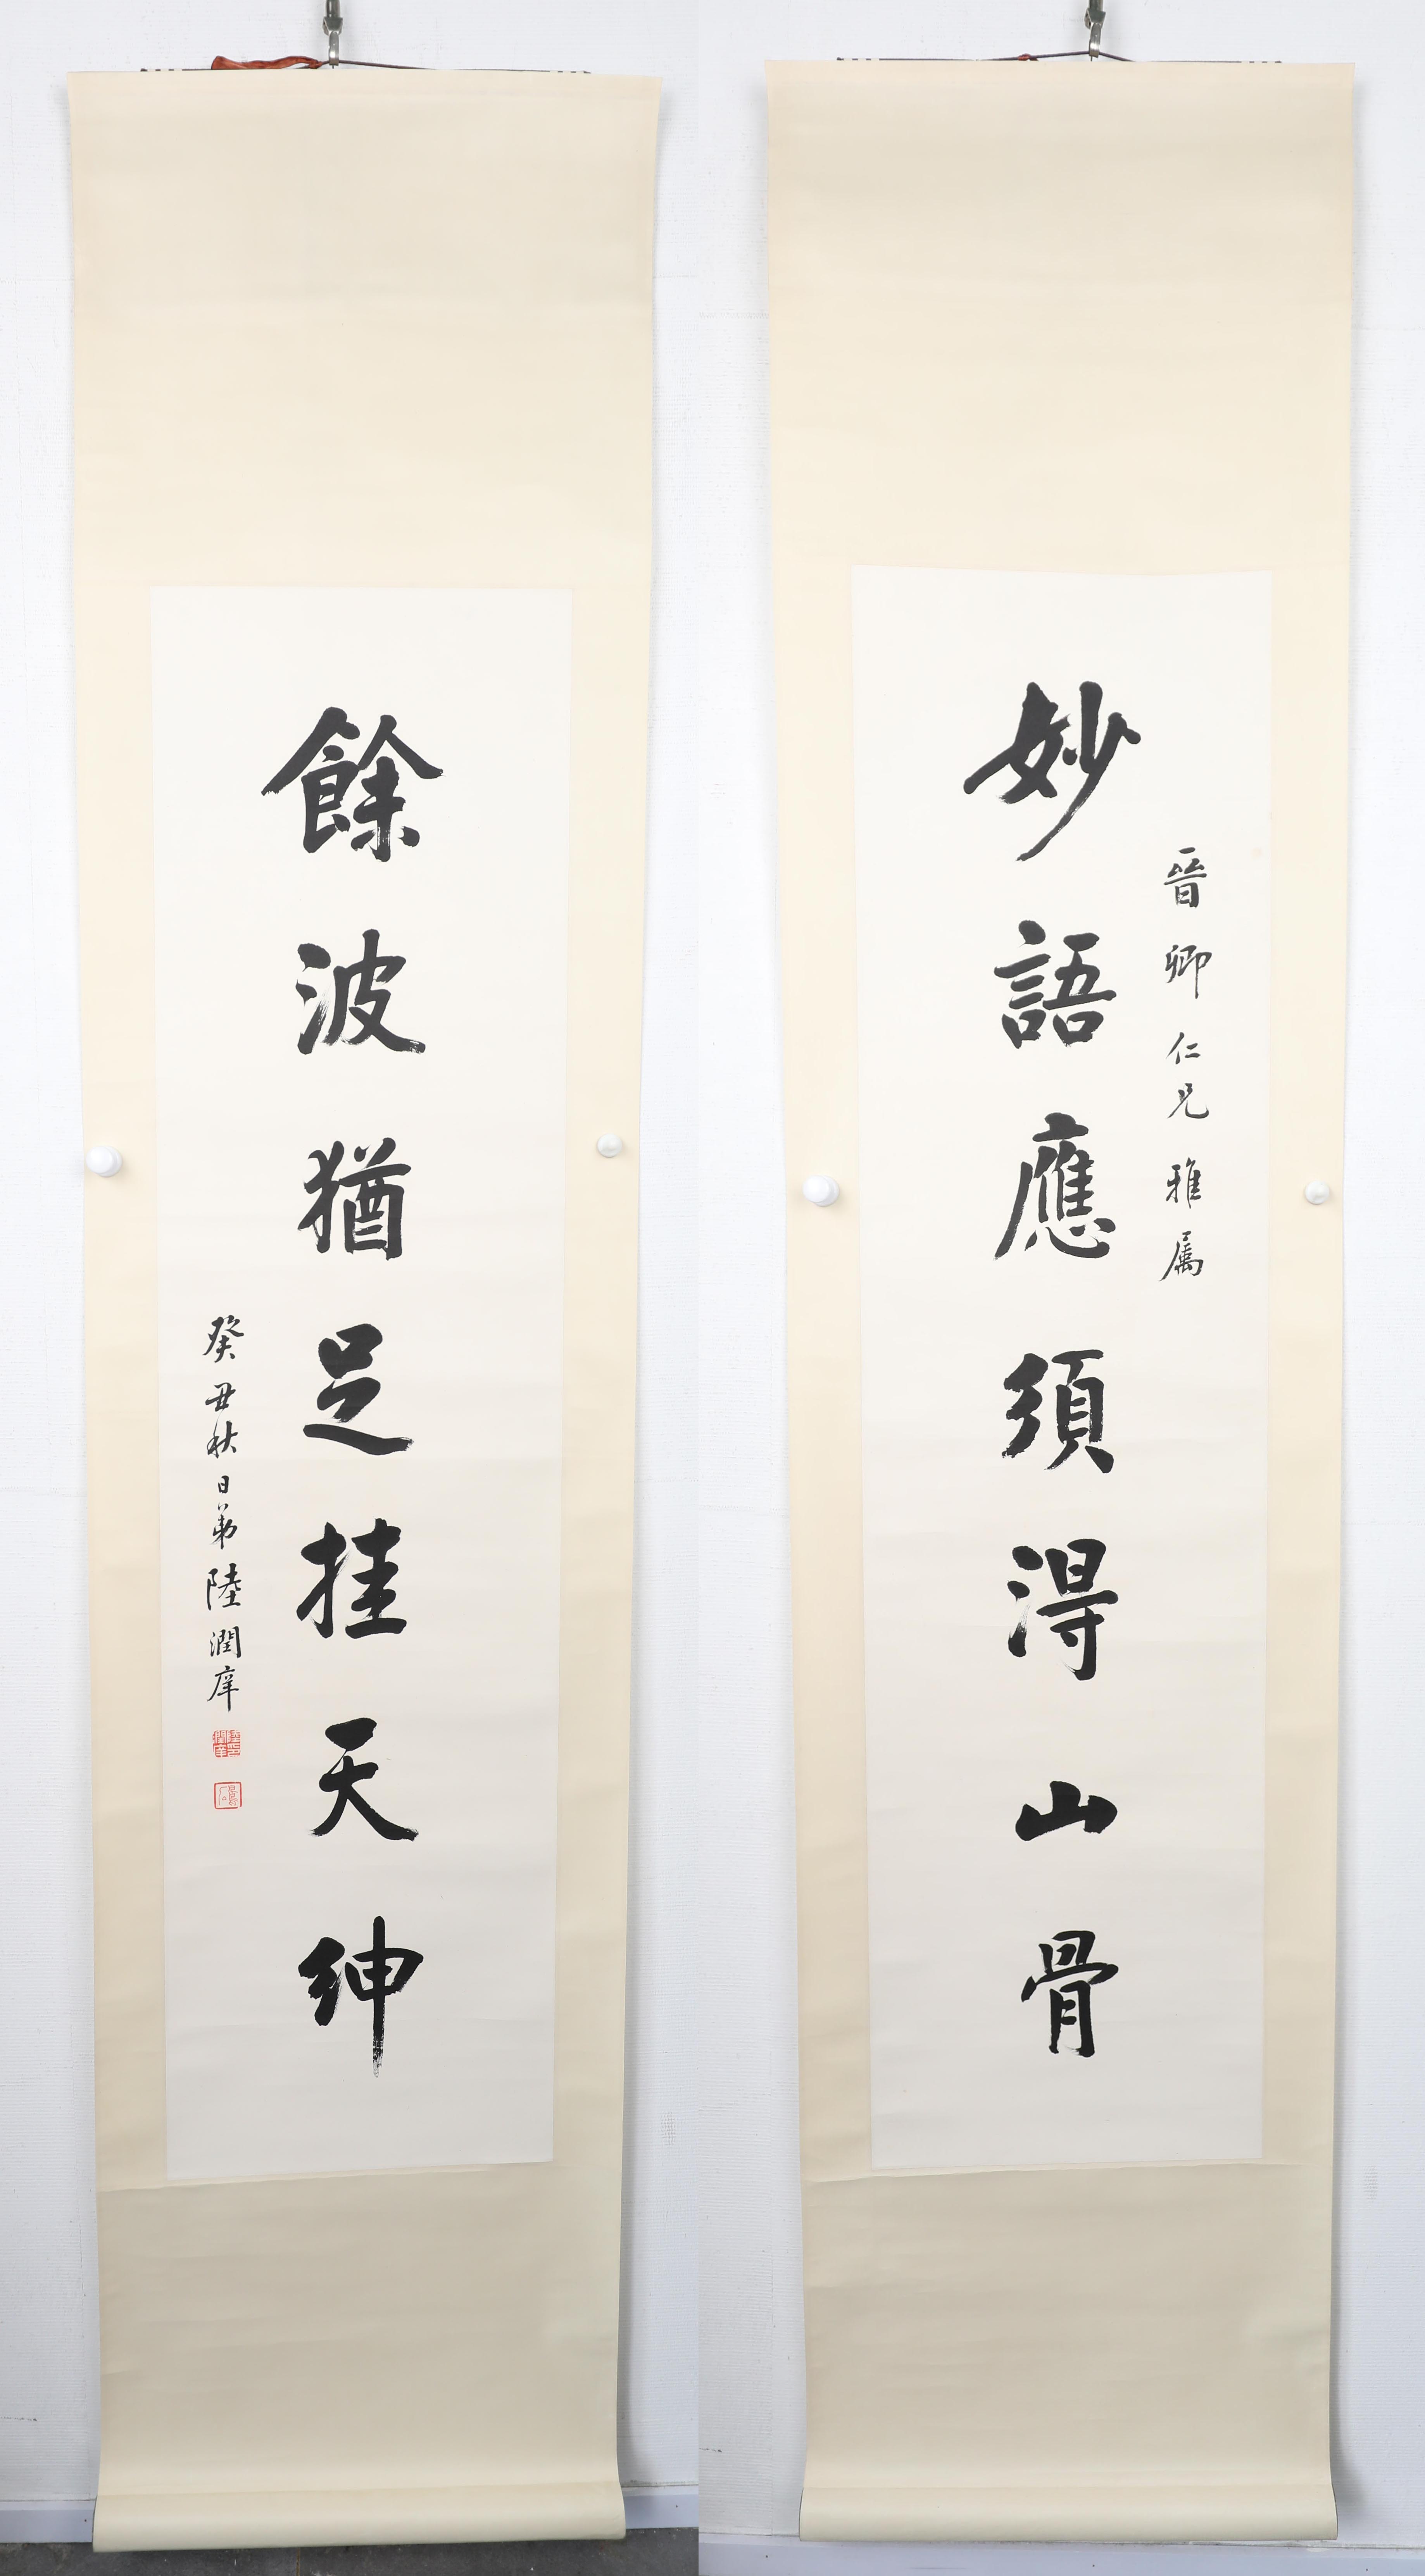 晉卿仁兄雅属
妙語應須淂山骨
餘波猶足挂天紳
癸丑秋日弟陸潤庠